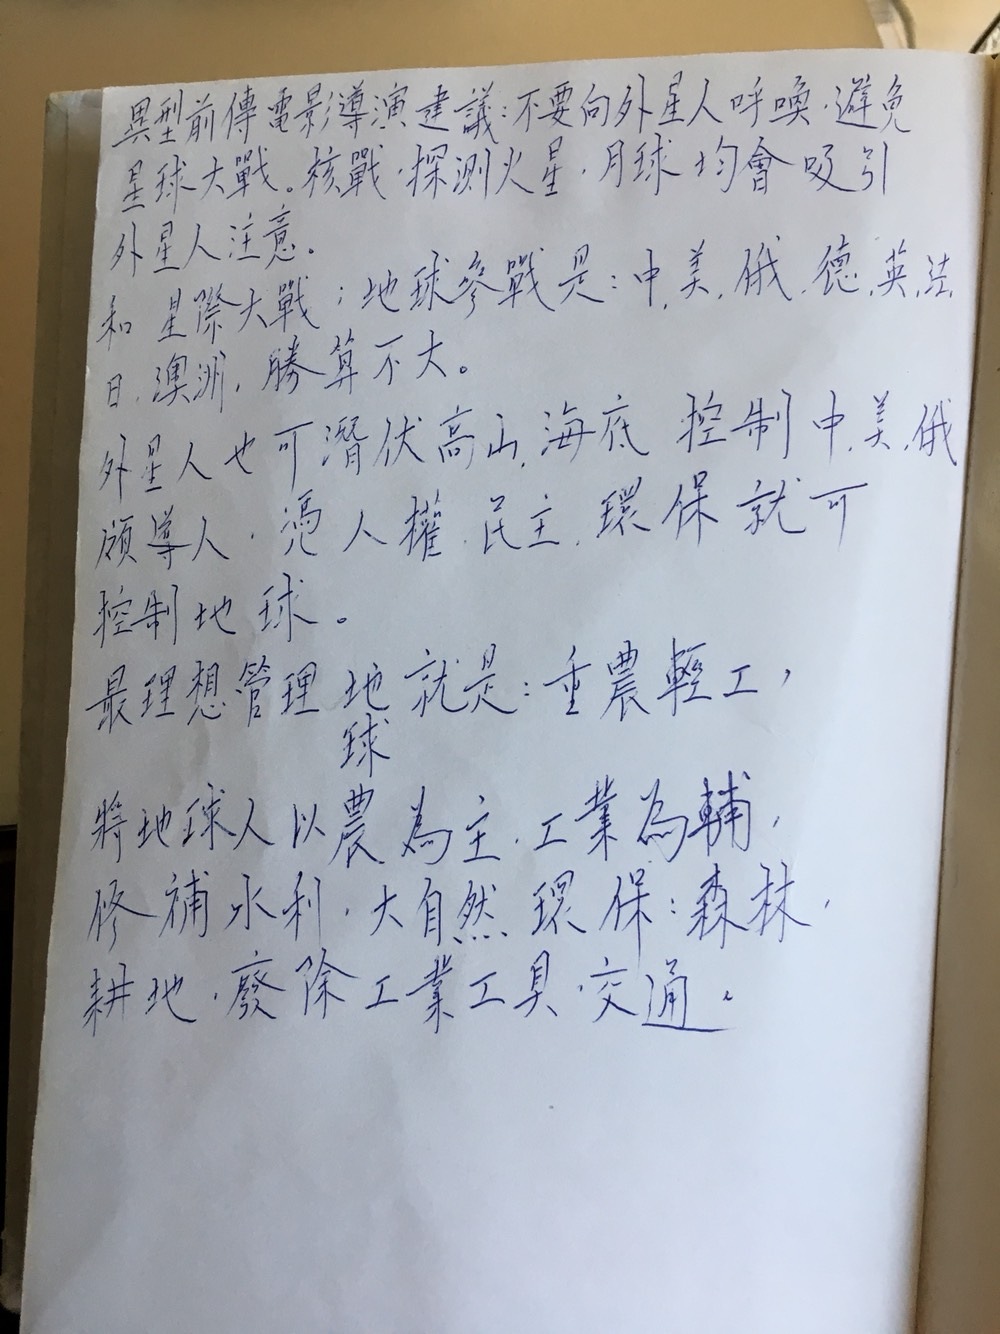 異型前傳電影導演建議:不要向外星人呼喚,避免
星球大戰。核戰,探測火星,月球均會吸引
外星人注意。
和星際大戰;地球參戰是:中,美,俄,德,英,法,
日,澳洲,勝算不大。
外星人也可潛伏高山,海底控制中,美,俄
領導人,憑人權,民主,環保就可
控制地球。
最理想管理地球就是:重農輕工,
將地球人以農為主,工業為輔,
修補水利,大自然環保:森林,
耕地,廢除工業工具,交通。